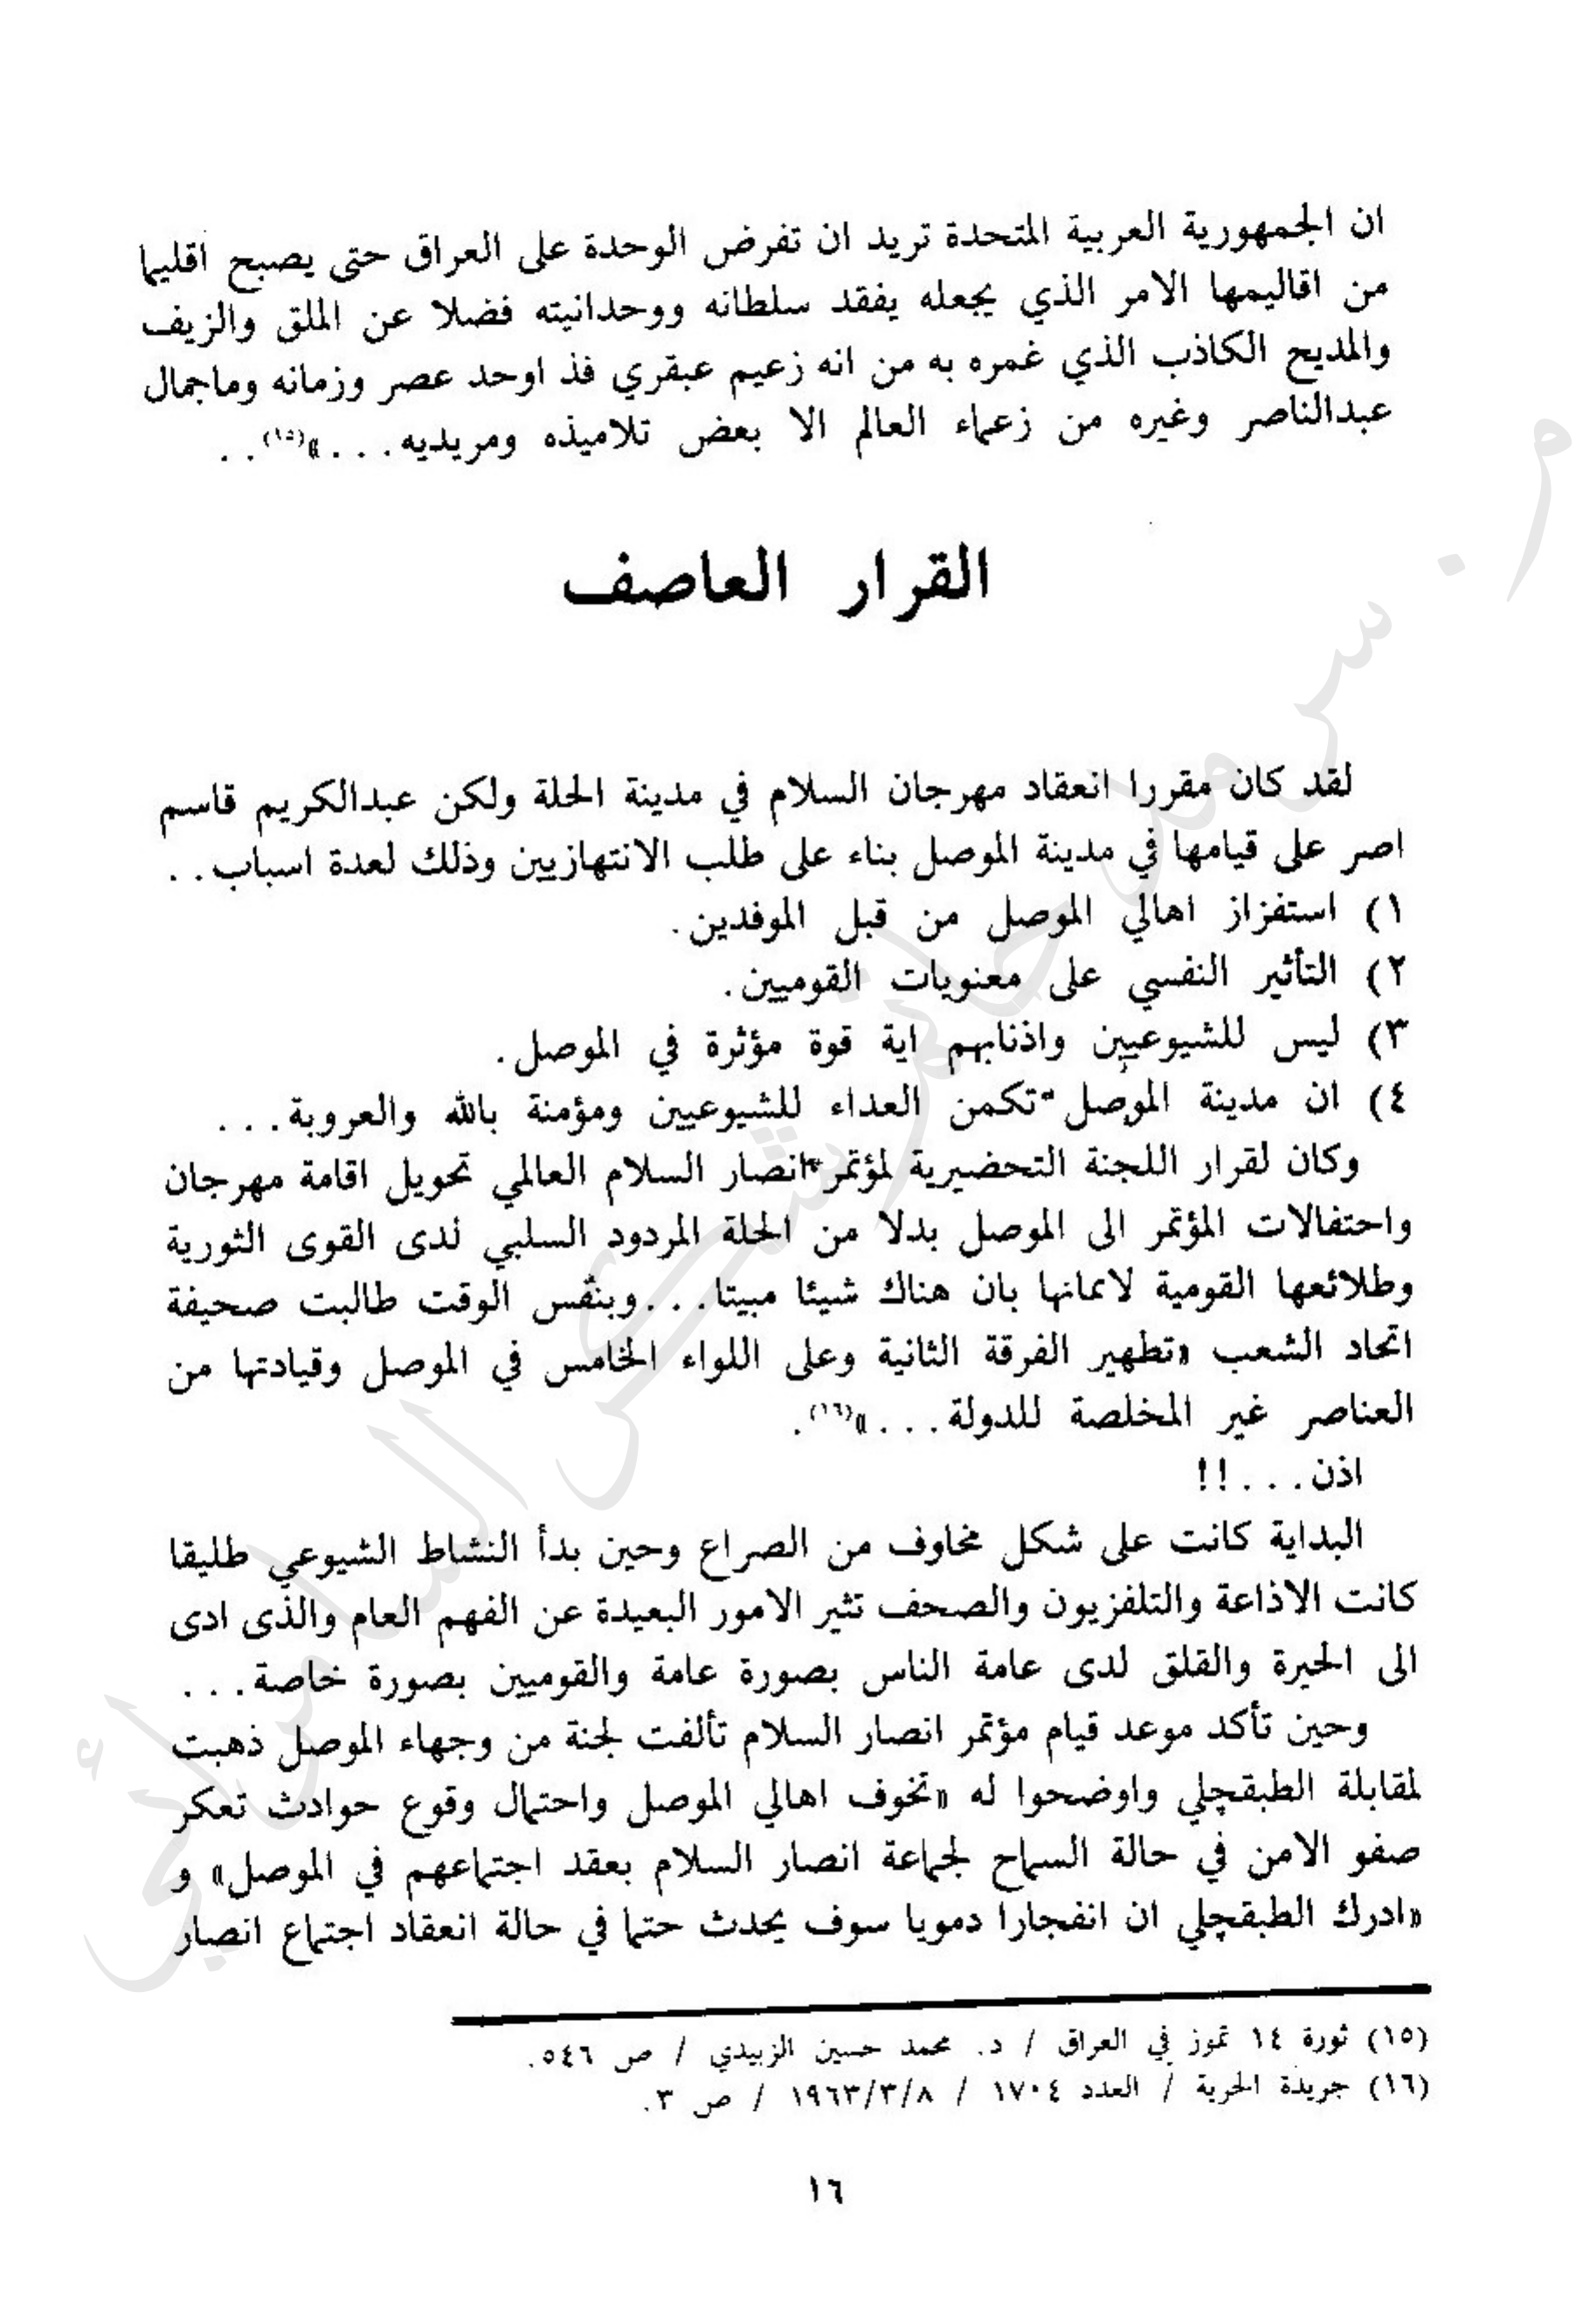 ان الجمهورية العربية المتحدة تريد ان تفرض الوحدة على العراق حتى يصبح اقليما
من اقاليمها الامر الذي يجعله يفقد سلطانه ووحدانيته فضلا عن الملق والزيف
والمديح الكاذب الذي غمره به من انه زعيم عبقري فذ اوحد عصر وزمانه وماجمال
عبدالناصر وغيره من زعماء العالم الا بعض تلاميذه ومريديه...»(١٥)..
القرار العاصف
لقد كان مقررا انعقاد مهرجان السلام في مدينة الحلة ولكن عبدالكريم قاسم
اصر على قيامها في مدينة الموصل بناء على طلب الانتهازيين وذلك لعدة اسباب..
١) استفزاز اهالي الموصل من قبل الموفدين.
٢) التأثير النفسي على معنويات القوميين.
٣) ليس للشيوعيين واذنابهم اية قوة مؤثرة في الموصل.
٤) ان مدينة الموصل تكمن العداء للشيوعيين ومؤمنة بالله والعروبة...
وكان لقرار اللجنة التحضيرية لمؤتمر انصار السلام العالمي تحويل اقامة مهرجان
واحتفالات المؤتمر الى الموصل بدلا من الحلة المردود السلبي لدى القوى الثورية
وطلائعها القومية لايمانها بان هناك شيئا مبيتا...وبنفس الوقت طالبت صحيفة
اتحاد الشعب «تطهير الفرقة الثانية وعلى اللواء الخامس في الموصل وقيادتها من
العناصر غير المخلصة للدولة...»(١٦).
اذن...!!
البداية كانت على شكل مخاوف من الصراع وحين بدأ النشاط الشيوعي طليقا
كانت الاذاعة والتلفزيون والصحف تثير الامور البعيدة عن الفهم العام والذى ادى
الى الحيرة والقلق لدى عامة الناس بصورة عامة والقوميين بصورة خاصة...
وحين تأكد موعد قيام مؤتمر انصار السلام تألفت لجنة من وجهاء الموصل ذهبت
لمقابلة الطبقچلي واوضحوا له «تخوف اهالي الموصل واحتمال وقوع حوادث تعكر
صفو الامن في حالة السماح لجماعة انصار السلام بعقد اجتماعهم في الموصل» و
«ادرك الطبقچلي ان انفجارا دمويا سوف يحدث حتما في حالة انعقاد اجتماع انصار
(١٥) ثورة ١٤ تموز في العراق / د. محمد حسين الزبيدي / ص ٥٤٦.
(١٦) جريدة الحرية / العدد ١٧٠٤ / ١٩٦٣/٣/٨ / ص ٣.
١٦
م. سرمد حاتم شكر السامرائي